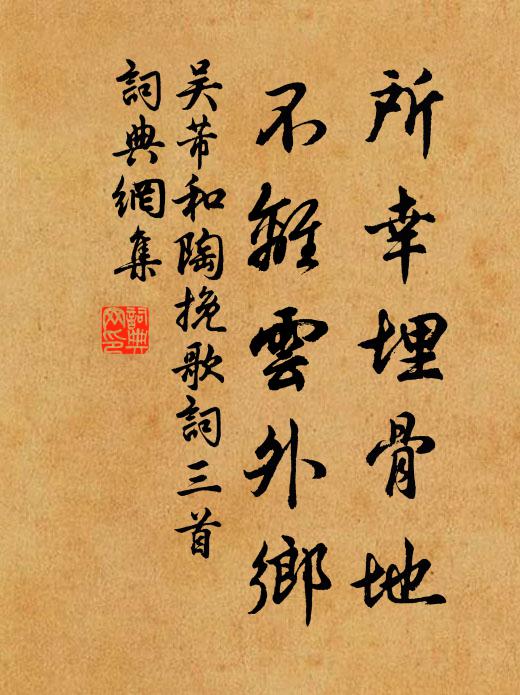 所幸埋骨地
不離雲外鄉
吳芾和陶挽歌詞三首
詞典網集
詞典網印